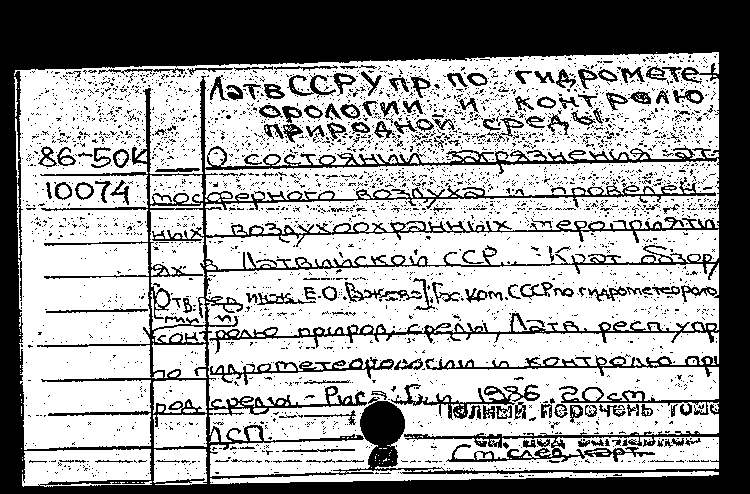 Латв ССР. Упр. по гидромете-
орологии и контролю
природной среды.
86-50К О состоянии загрязнения ат-
10074 мосферного воздуха и проведен-
ных воздухоохранных мероприяти-
ях в Латвийской ССР... Крат. обзор/
[Отв. ред. инж. Е.О. ]; Гос. ком. СССР по гидрометеороло
гии и
контролю природ. среды, Латв. респ. упр
по гидрометеорологии и контролю при
род. среды. - Рига: Б. и. 1986. 20 см.
Полный перечень томо
ДСП.
см. под заглавием
См. след. карт.